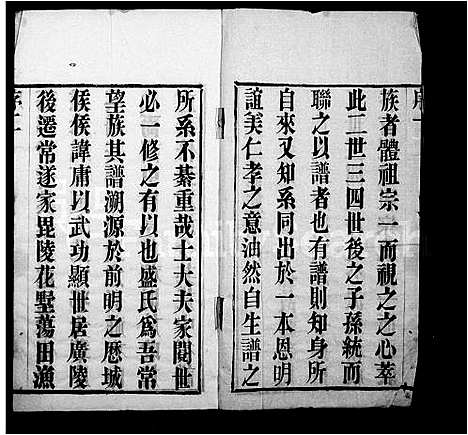 序一
族者體祖宗一而視之之心萃
此二世三四世後之子孫統而
聯之以譜者也有譜則知身所
自來又知系同出於一本恩明
誼美仁孝之意油然自生譜之
所系不綦重哉士大夫家閱世
必一修之有以也盛氏爲吾常
望族其譜溯源於前明之歷城
侯侯諱庸以武功顯世居廣陵
後遷常遂家毘陵花墅蕩田漁
序二